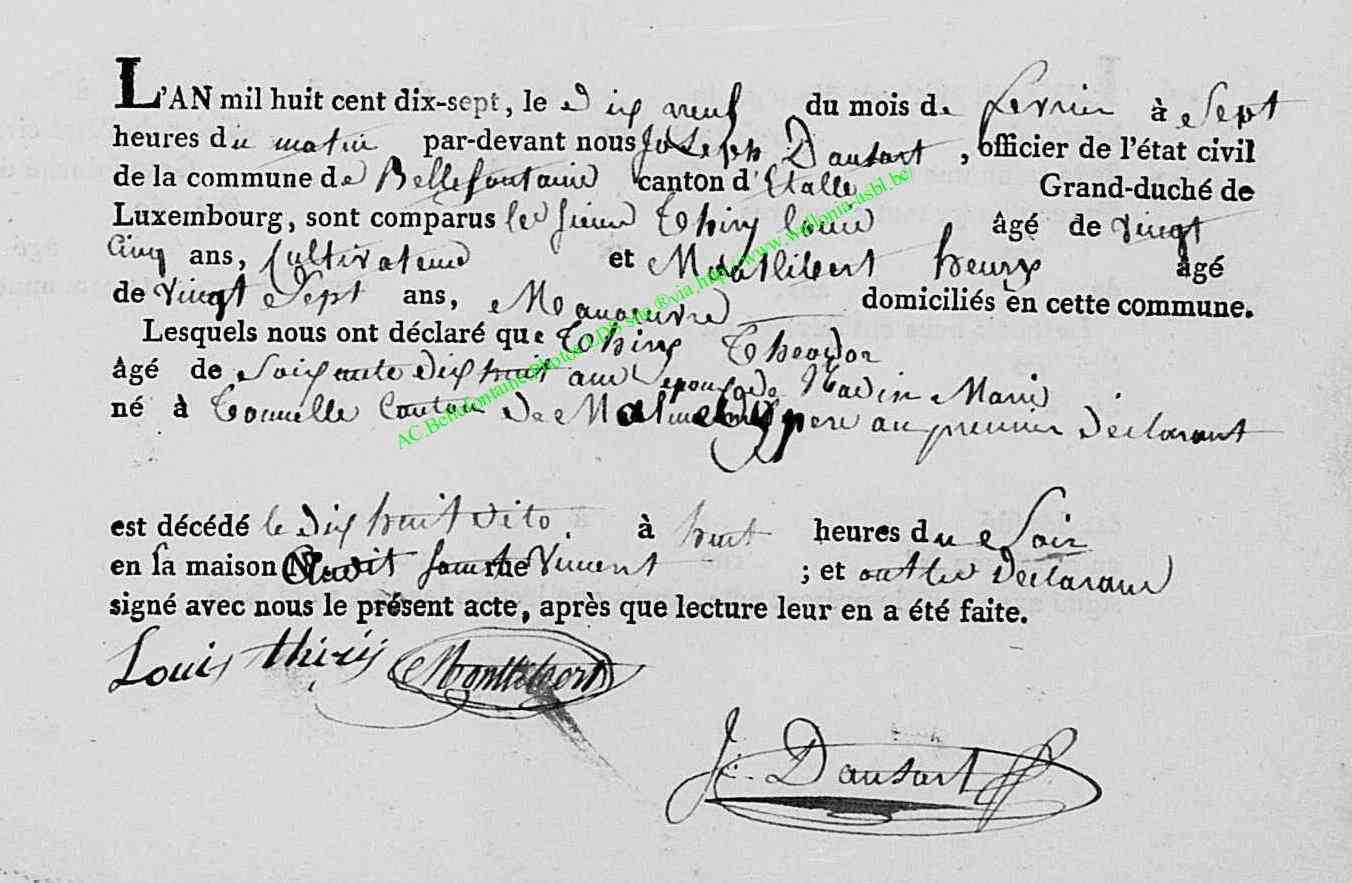 L'AN mil huit cent dix-sept, le dix neuf du mois de fevrier à Sept
heures du matin par-devant nous Joseph Dausart, officier de l'état civil
de la commune de Bellefontaine canton d'Etalle Grand-duché de
Luxembourg, sont comparus les sieur Thiry louis âgé de vingt
Cinq ans, Cultivateur et henry âgé
de vingt Sept ans, Manoeuvre domiciliés en cette commune.
Lesquels nous ont déclaré que Thiry Theodor
âgé de Soixante dix huit ans epoux de Marie
né à Canton de pere au premier declarant
est décédé le dix huit dito à huit heures du Soir
en sa maison rue Vincent ; et ont les declarans
signé avec nous le présent acte, après que lecture leur en a été faite.
Louis thiry
J. Dausart
AC.Bellefontaine photos LDS site ®via http://www.wallonia-asbl.be/